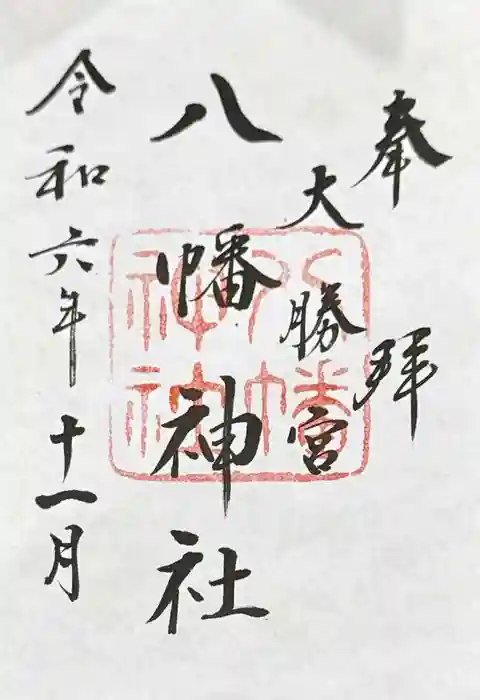 奉拝
大勝宮
八幡神社
令和六年十一月
八幡
神社